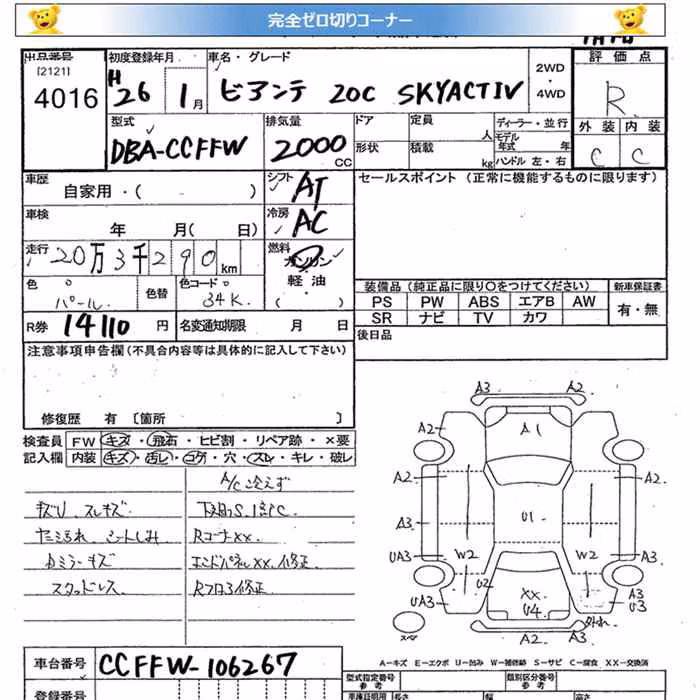 完全ゼロ切りコーナー
出品番号 初度登録年月 車名・グレード 評価点
[2121]
4016 H 26 1月 ビアンテ 20C SKYACTIV 2WD・4WD R
型式 排気量 ドア 定員 人 ディーラー・並行 外装 内装
DBA-CCFFW 2000 CC 形状 積載 kg モデル年式 年 ハンドル 左・右 C C
車歴 シフト セールスポイント (正常に機能するものに限ります)
自家用・( ) AT
車検 冷房
年 月( 日) AC
走行 燃料
20万3千290 km ガソリン
色 色替 色コード 軽油 装備品(純正品に限り○をつけてください) 新車保証書
パール 34K ( ) PS PW ABS エアB AW 有・無
R券 14110 円 名変通知期限 月 日 SR ナビ TV カワ
注意事項申告欄(不具合内容等は具体的に記入して下さい) 後日品
修復歴 有 〔箇所 〕
検査員 FW キズ・飛石・ヒビ割・リペア跡・×要
記入欄 内装 キズ・汚レ・コゲ・穴・スレ・キレ・破レ
A/C冷えず
キズU スレキズ
ヤニ汚れ シートしみ RコーナーXX
ミラーキズ エンドパネルXX 修正
スタッドレス Rフロア修正
A3 A2
A2 A1
A2 A2
A3 U1
UA3 W2 W2 A3
UA3 U2 XX A3
U4 U3
スペア A2 A3
A-キズ E-エクボ U-凹み W-補修跡 S-サビ C-腐食 XX-交換済
車台番号 CCFFW-106267
型式指定番号 参考 類別区分番号 参考
登録番号 車庫証明用 長さ 幅 高さ